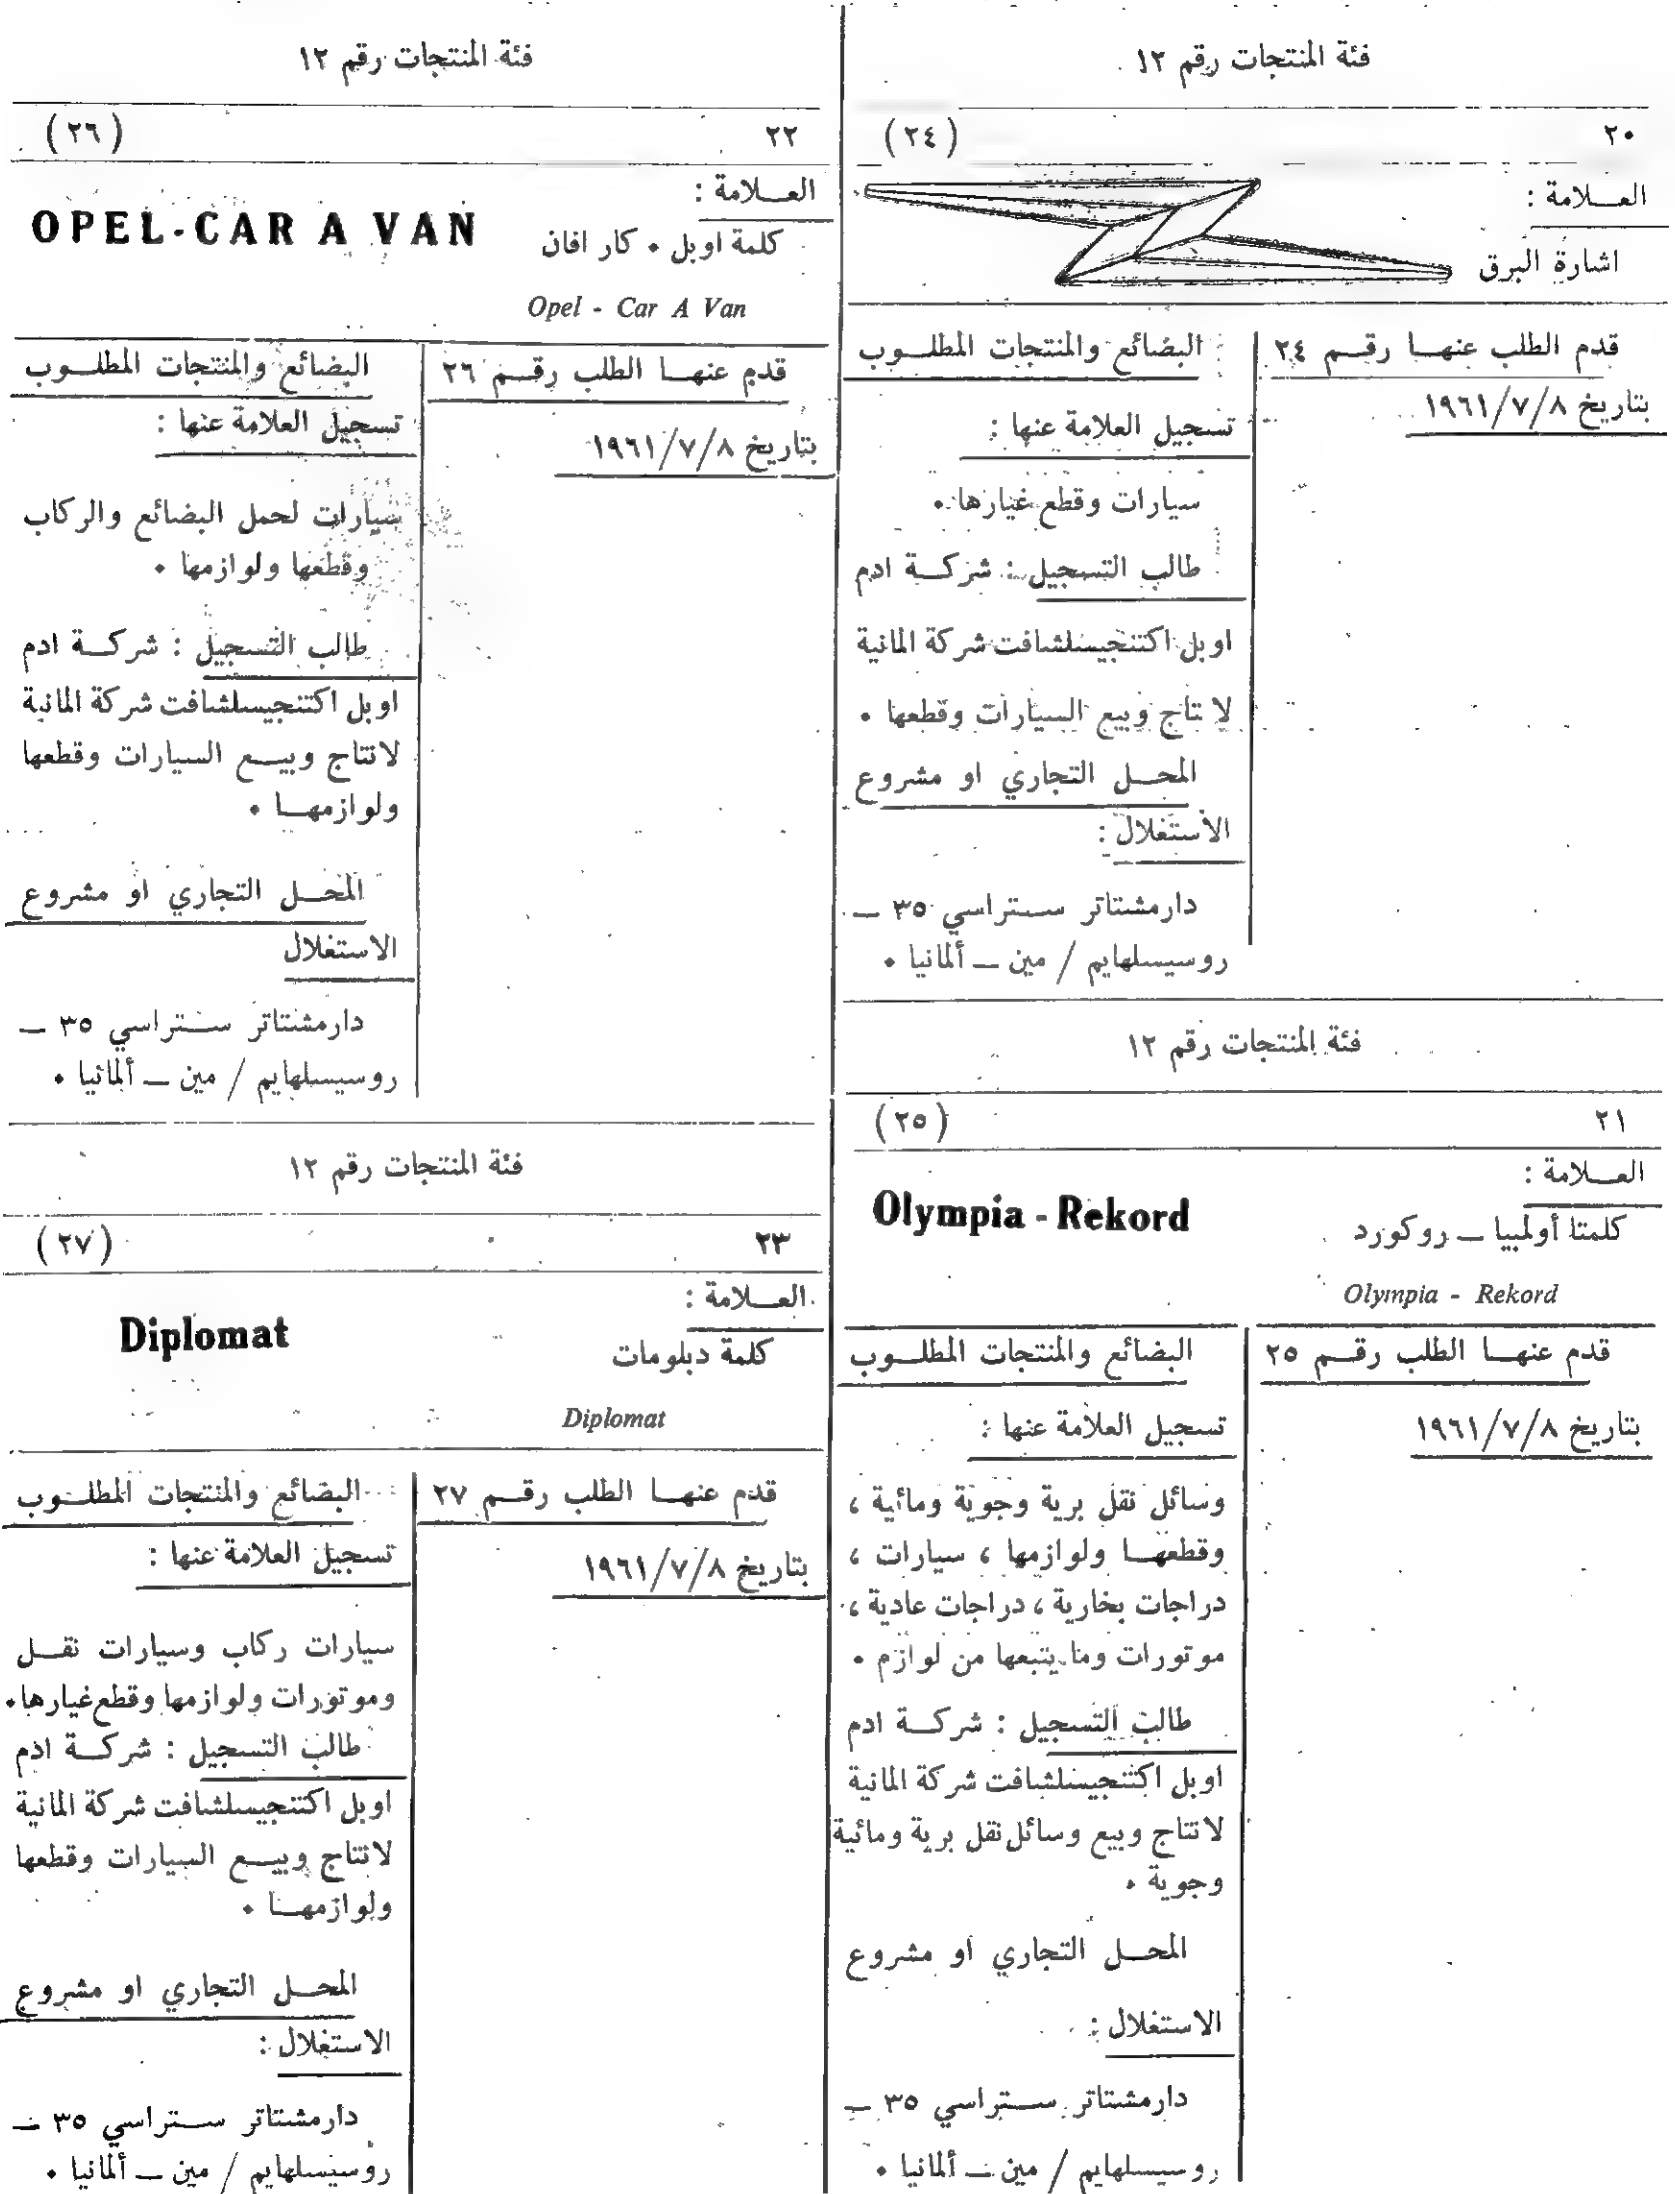 فئة المنتجات رقم ١٢
٢٠ (٢٤)
العـــلامة :
اشارة البرق
قدم الطلب عنهــا رقــم ٢٤
بتاريخ ١٩٦١/٧/٨
البضائع والمنتجات المطلــوب
تسجيل العلامة عنها :
سيارات وقطع غيارها ٠
طالب التسجيل : شركــة ادم
اوبل اكتنجيسلشافت شركة المانية
لانتاج وبيع السيارات وقطعها ٠
المحــل التجاري او مشروع
الاستغلال :
دارمشتاتر ستــراسي ٣٥ ــ
روسيسلهايم / مين ــ ألمانيا ٠
فئة المنتجات رقم ١٢
٢١ (٢٥)
العـــلامة :
كلمتا أولمبيا ــ روكورد
Olympia - Rekord
Olympia - Rekord
قدم عنهــا الطلب رقــم ٢٥
بتاريخ ١٩٦١/٧/٨
البضائع والمنتجات المطلــوب
تسجيل العلامة عنها :
وسائل نقل برية وجوية ومائية ،
وقطعهــا ولوازمها ، سيارات ،
دراجات بخارية ، دراجات عادية ،
موتورات وما يتبعها من لوازم ٠
طالب التسجيل : شركــة ادم
اوبل اكتنجيسلشافت شركة المانية
لانتاج وبيع وسائل نقل برية ومائية
وجوية ٠
المحــل التجاري او مشروع
الاستغلال :
دارمشتاتر ستــراسي ٣٥ ــ
روسيسلهايم / مين ــ ألمانيا ٠
فئة المنتجات رقم ١٢
٢٢ (٢٦)
العـــلامة :
كلمة اوبل ٠ كار افان
OPEL-CAR A VAN
Opel - Car A Van
قدم عنهــا الطلب رقــم ٢٦
بتاريخ ١٩٦١/٧/٨
البضائع والمنتجات المطلــوب
تسجيل العلامة عنها :
سيارات لحمل البضائع والركاب
وقطعها ولوازمها ٠
طالب التسجيل : شركــة ادم
اوبل اكتنجيسلشافت شركة المانية
لانتاج وبيــع السيارات وقطعها
ولوازمهــا ٠
المحــل التجاري او مشروع
الاستغلال
دارمشتاتر ستــراسي ٣٥ ــ
روسيسلهايم / مين ــ ألمانيا ٠
فئة المنتجات رقم ١٢
٢٣ (٢٧)
العـــلامة :
كلمة دبلومات
Diplomat
Diplomat
قدم عنهــا الطلب رقــم ٢٧
بتاريخ ١٩٦١/٧/٨
البضائع والمنتجات المطلــوب
تسجيل العلامة عنها :
سيارات ركاب وسيارات نقــل
وموتورات ولوازمها وقطع غيارها ٠
طالب التسجيل : شركــة ادم
اوبل اكتنجيسلشافت شركة المانية
لانتاج وبيــع السيارات وقطعها
ولوازمهــا ٠
المحــل التجاري او مشروع
الاستغلال :
دارمشتاتر ستــراسي ٣٥ ــ
روسيسلهايم / مين ــ ألمانيا ٠